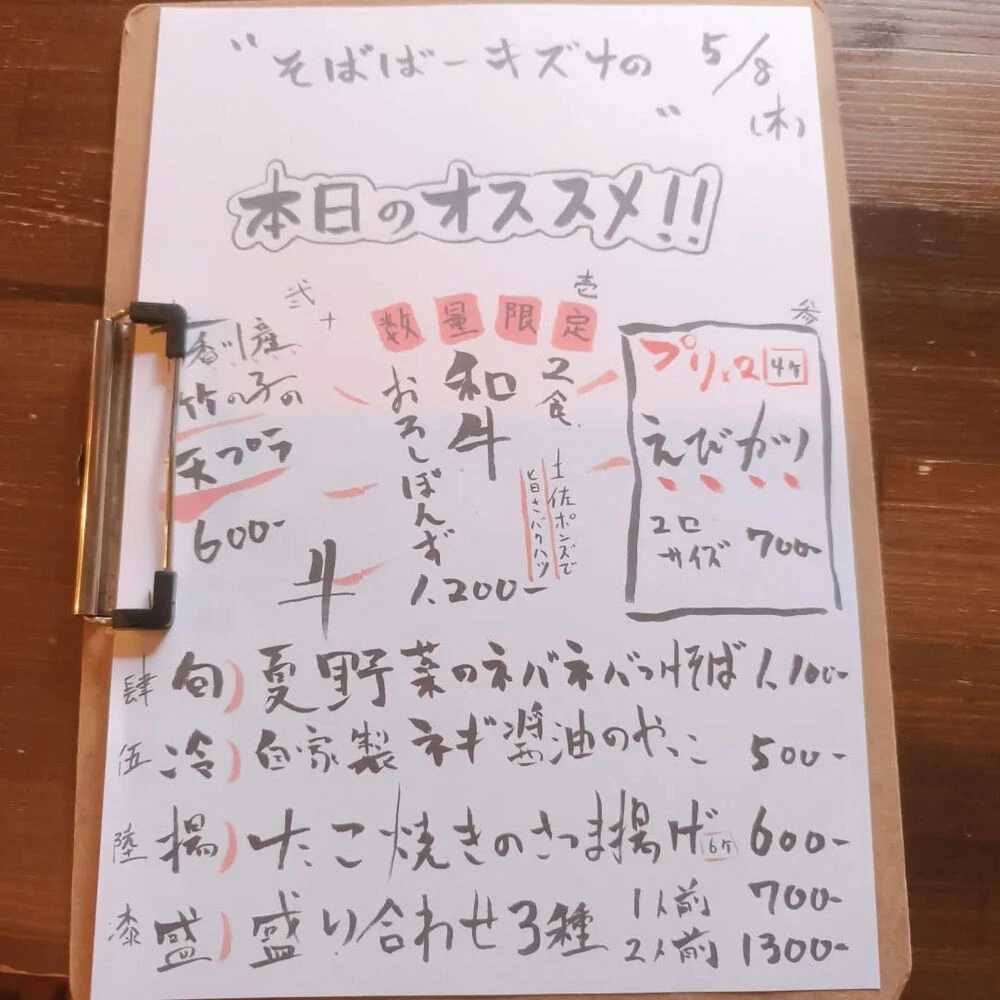 "そばばーキズナの 5/8
" (木)
本日のオススメ!!
壱
数量限定
2食
和牛
おろしぽんず
土佐ポンズで
旨さバクハツ
1,200-
牛
弐
香川産
竹の子の
天プラ
600-
参
プリx2 4ケ
えびカツ
2口
サイズ 700-
肆 旬)夏野菜のネバネバつけそば 1,100-
伍 冷)自家製ネギ醤油のやっこ 500-
陸 揚)たこ焼きのさつま揚げ 6ケ 600-
漆 盛)盛り合わせ3種 1人前 700-
2人前 1300-